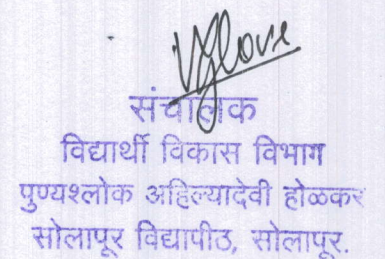 संचालक
विद्यार्थी विकास विभाग
पुण्यश्लोक अहिल्यादेवी होळकर
सोलापूर विद्यापीठ, सोलापूर.